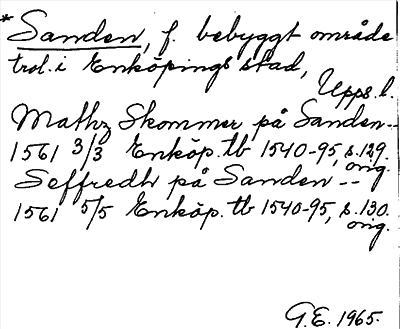 *Sanden, f. bebyggt område
trol. i Enköpings stad,
Upps. l.
Mathz Skommer på Sanden --
1561 3/3 Enköp. tb 1540-95, s. 129.
orig.
Seffredh på Sanden --
1561 5/5 Enköp. tb 1540-95, s. 130.
orig.
G.E. 1965.